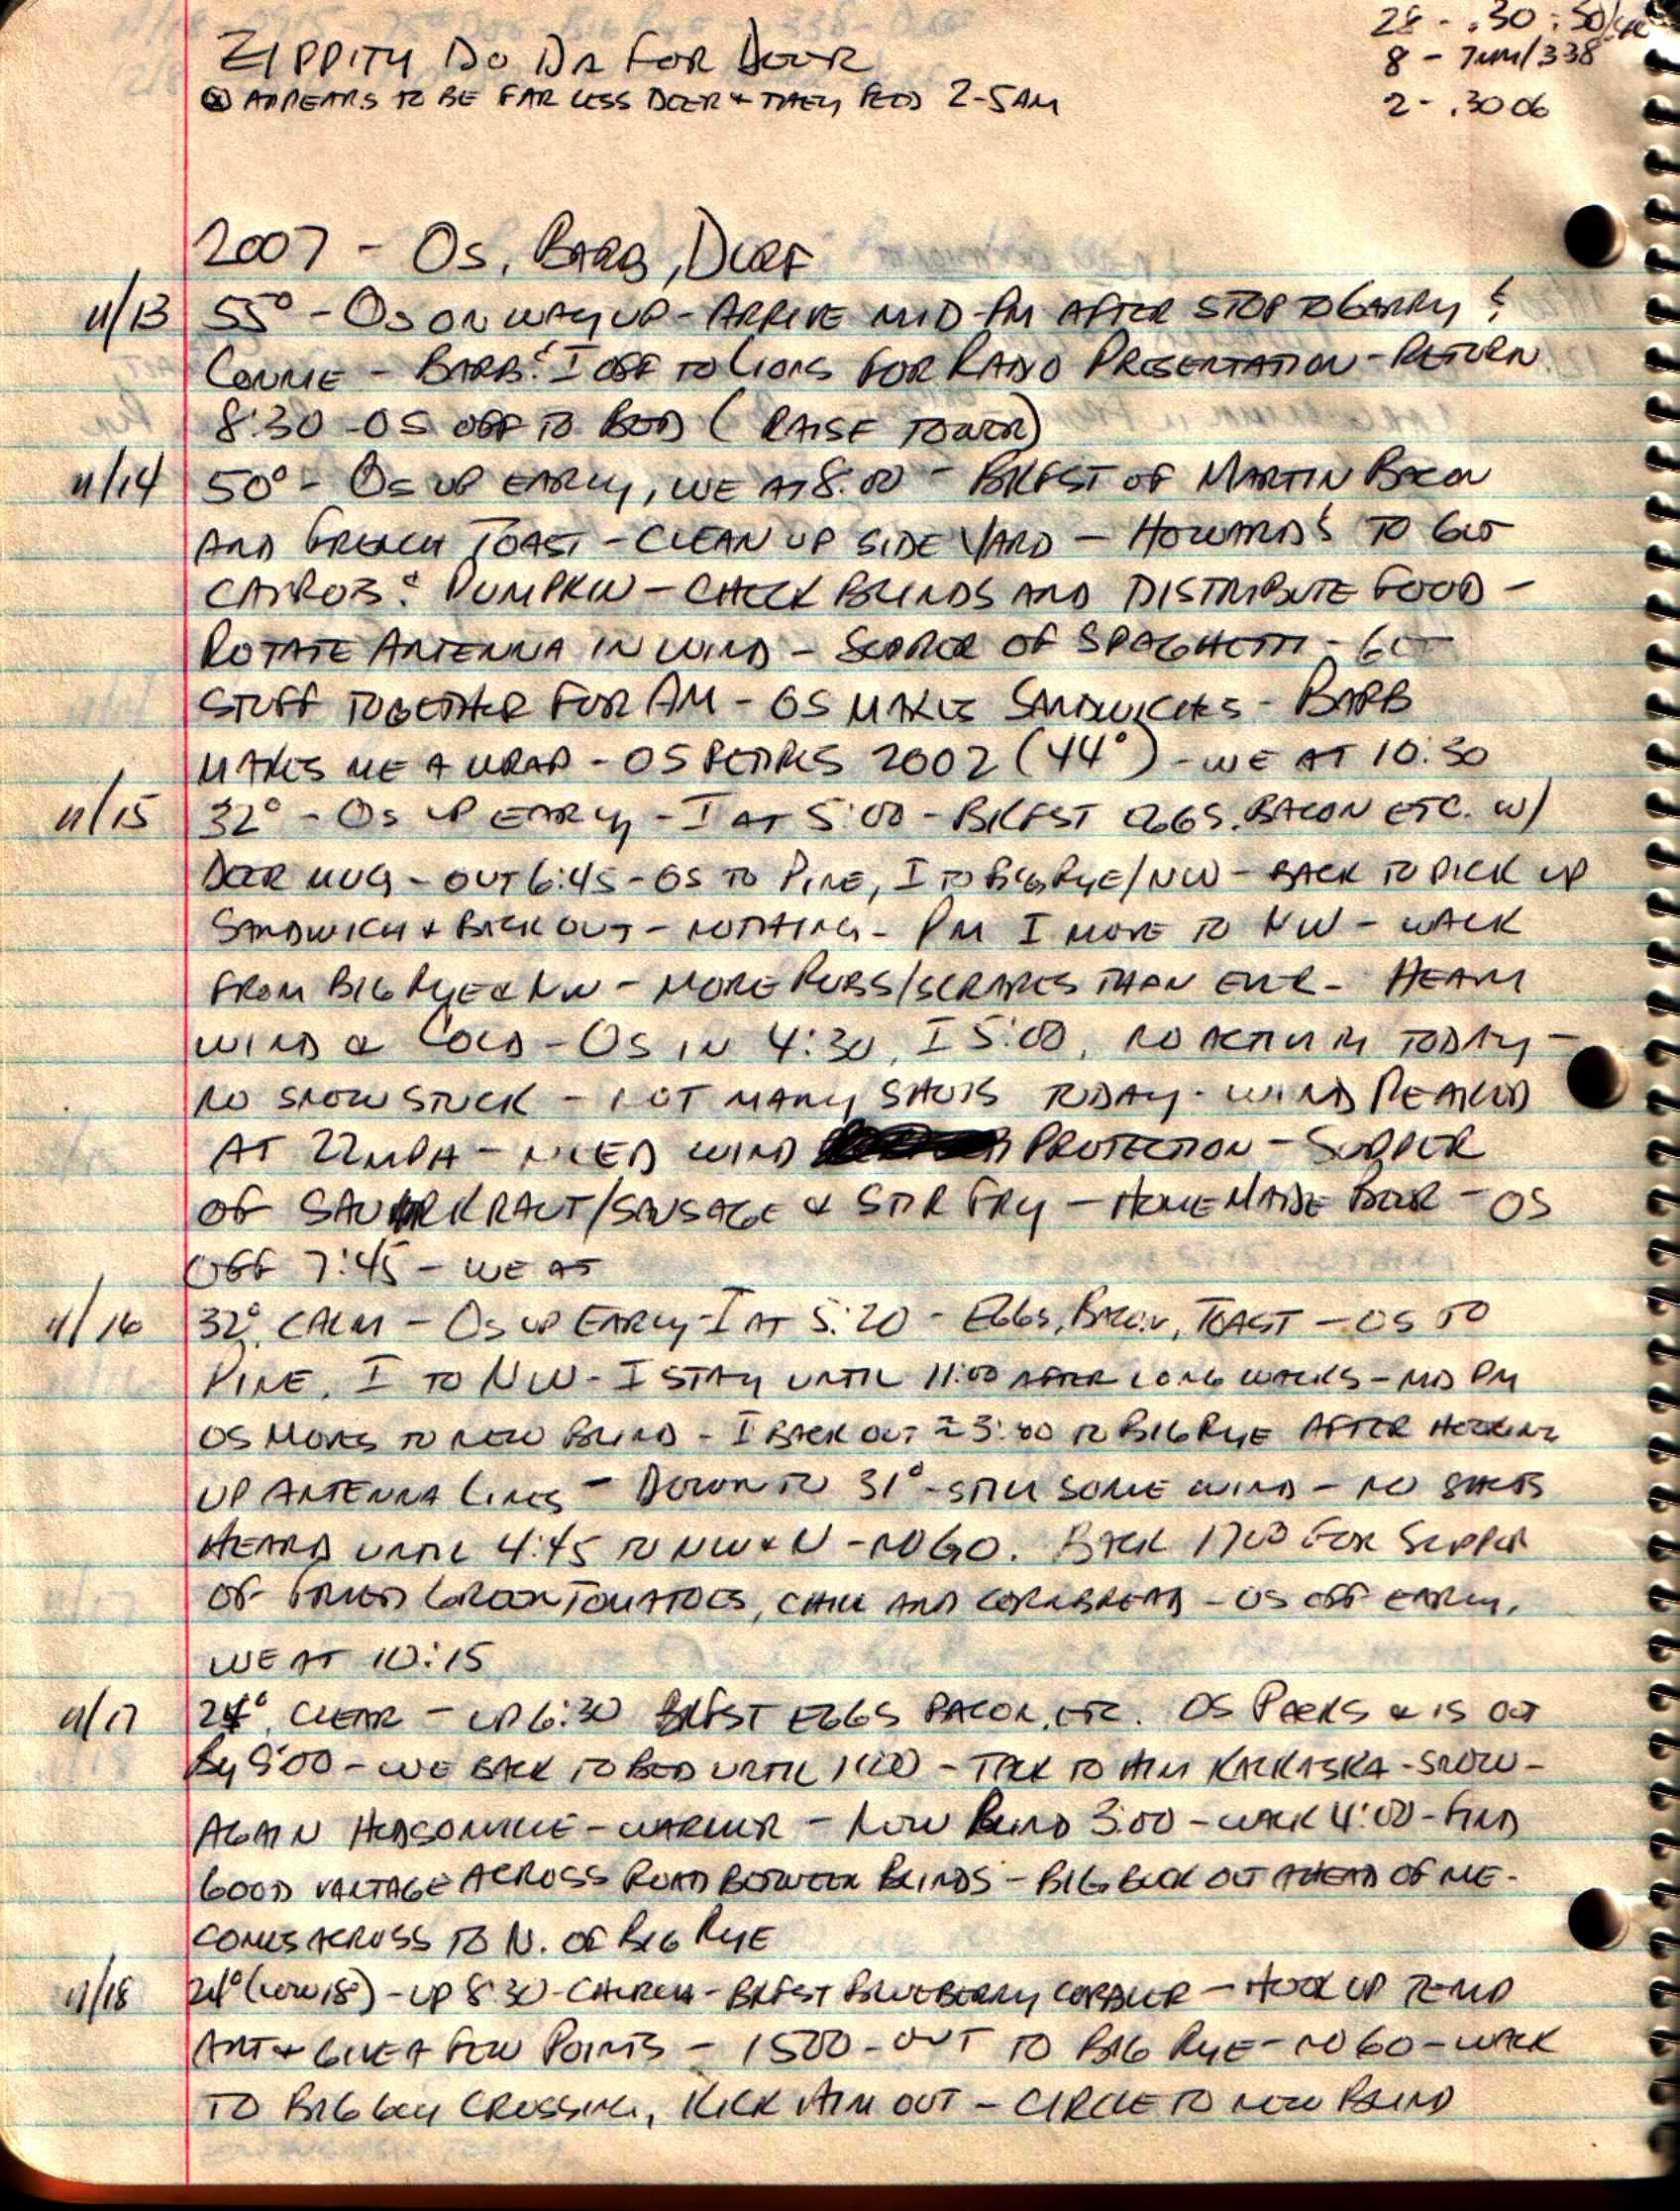 28 - .30-.50/cal
8 - 7mm/338
2 - .3006
ZIPPITY DO DA FOR DEER
⊗ APPEARS TO BE FAR LESS DEER & THEY FEED 2-5AM
2007 - OS, BARB, DURF
11/13 55° - OS ON WAY UP - ARRIVE MID-PM AFTER STOP TO GARRY &
CONNIE - BARB & I OFF TO LIONS FOR RADIO PRESENTATION - RETURN
8:30 - OS OFF TO BED (RAISE TOWER)
11/14 50° - OS UP EARLY, WE AT 8:00 - BRKFST OF MARTIN BACON
AND FRENCH TOAST - CLEAN UP SIDE YARD - HOWARDS TO GET
CARROTS & PUMPKIN - CHECK BLINDS AND DISTRIBUTE FOOD -
ROTATE ANTENNA IN WIND - SUPPER OF SPAGHETTI - GET
STUFF TOGETHER FOR AM - OS MAKES SANDWICHES - BARB
MAKES ME A WRAP - OS RETIRES 2002 (44°) - WE AT 10:30
11/15 32° - OS UP EARLY - I AT 5:00 - BRKFST EGGS, BACON ETC. W/
DEER MUG - OUT 6:45 - OS TO PINE, I TO BIG RYE/NW - BACK TO PICK UP
SANDWICH & BACK OUT - NOTHING - PM I MOVE TO NW - WALK
FROM BIG RYE & NW - MORE RUBS/SCRAPES THAN EVER - HEAVY
WIND & COLD - OS IN 4:30, I 5:00, NO ACTIVITY TODAY -
NO SNOW STUCK - NOT MANY SHOTS TODAY - WIND PEAKED
AT 22MPH - NEED WIND PROTECTION - SUPPER
OF SAURKRAUT/SAUSAGE & STIR FRY - HOMEMADE BEER - OS
OFF 7:45 - WE AT
11/16 32°, CALM - OS UP EARLY - I AT 5:20 - EGGS, BACON, TOAST - OS TO
PINE, I TO NW - I STAY UNTIL 11:00 AFTER LONG WALKS - MID PM
OS MOVES TO NEW BLIND - I BACK OUT ≈ 3:00 TO BIG RYE AFTER HOOKING
UP ANTENNA LINES - DOWN TO 31° - STILL SOME WIND - NO SHOTS
HEARD UNTIL 4:45 TO NW & N - NO GO. BACK 1700 FOR SUPPER
OF FRIED GREEN TOMATOES, CHILI AND CORNBREAD - OS OFF EARLY,
WE AT 10:15
11/17 24°, CLEAR - UP 6:30 BRKFST EGGS BACON, ETC. OS PACKS & IS OUT
BY 9:00 - WE BACK TO BED UNTIL - TALK TO HIM KALKASKA - SNOW -
AGAIN HUDSONVILLE - WARMER - NEW BLIND 3:00 - WALK 4:00 - FIND
GOOD VANTAGE ACROSS ROAD BETWEEN BLINDS - BIG BUCK OUT AHEAD OF ME -
COMES ACROSS TO N. OF BIG RYE
11/18 24° (LOW 18°) - UP 8:30 - CHURCH - BRKFST BLUEBERRY COBBLER - HOOK UP TEMP
ANT & GIVE A FEW POINTS - 1500 - OUT TO BIG RYE - NO GO - WALK
TO BIG GUY CROSSING, KICK HIM OUT - CIRCLE TO NEW BLIND